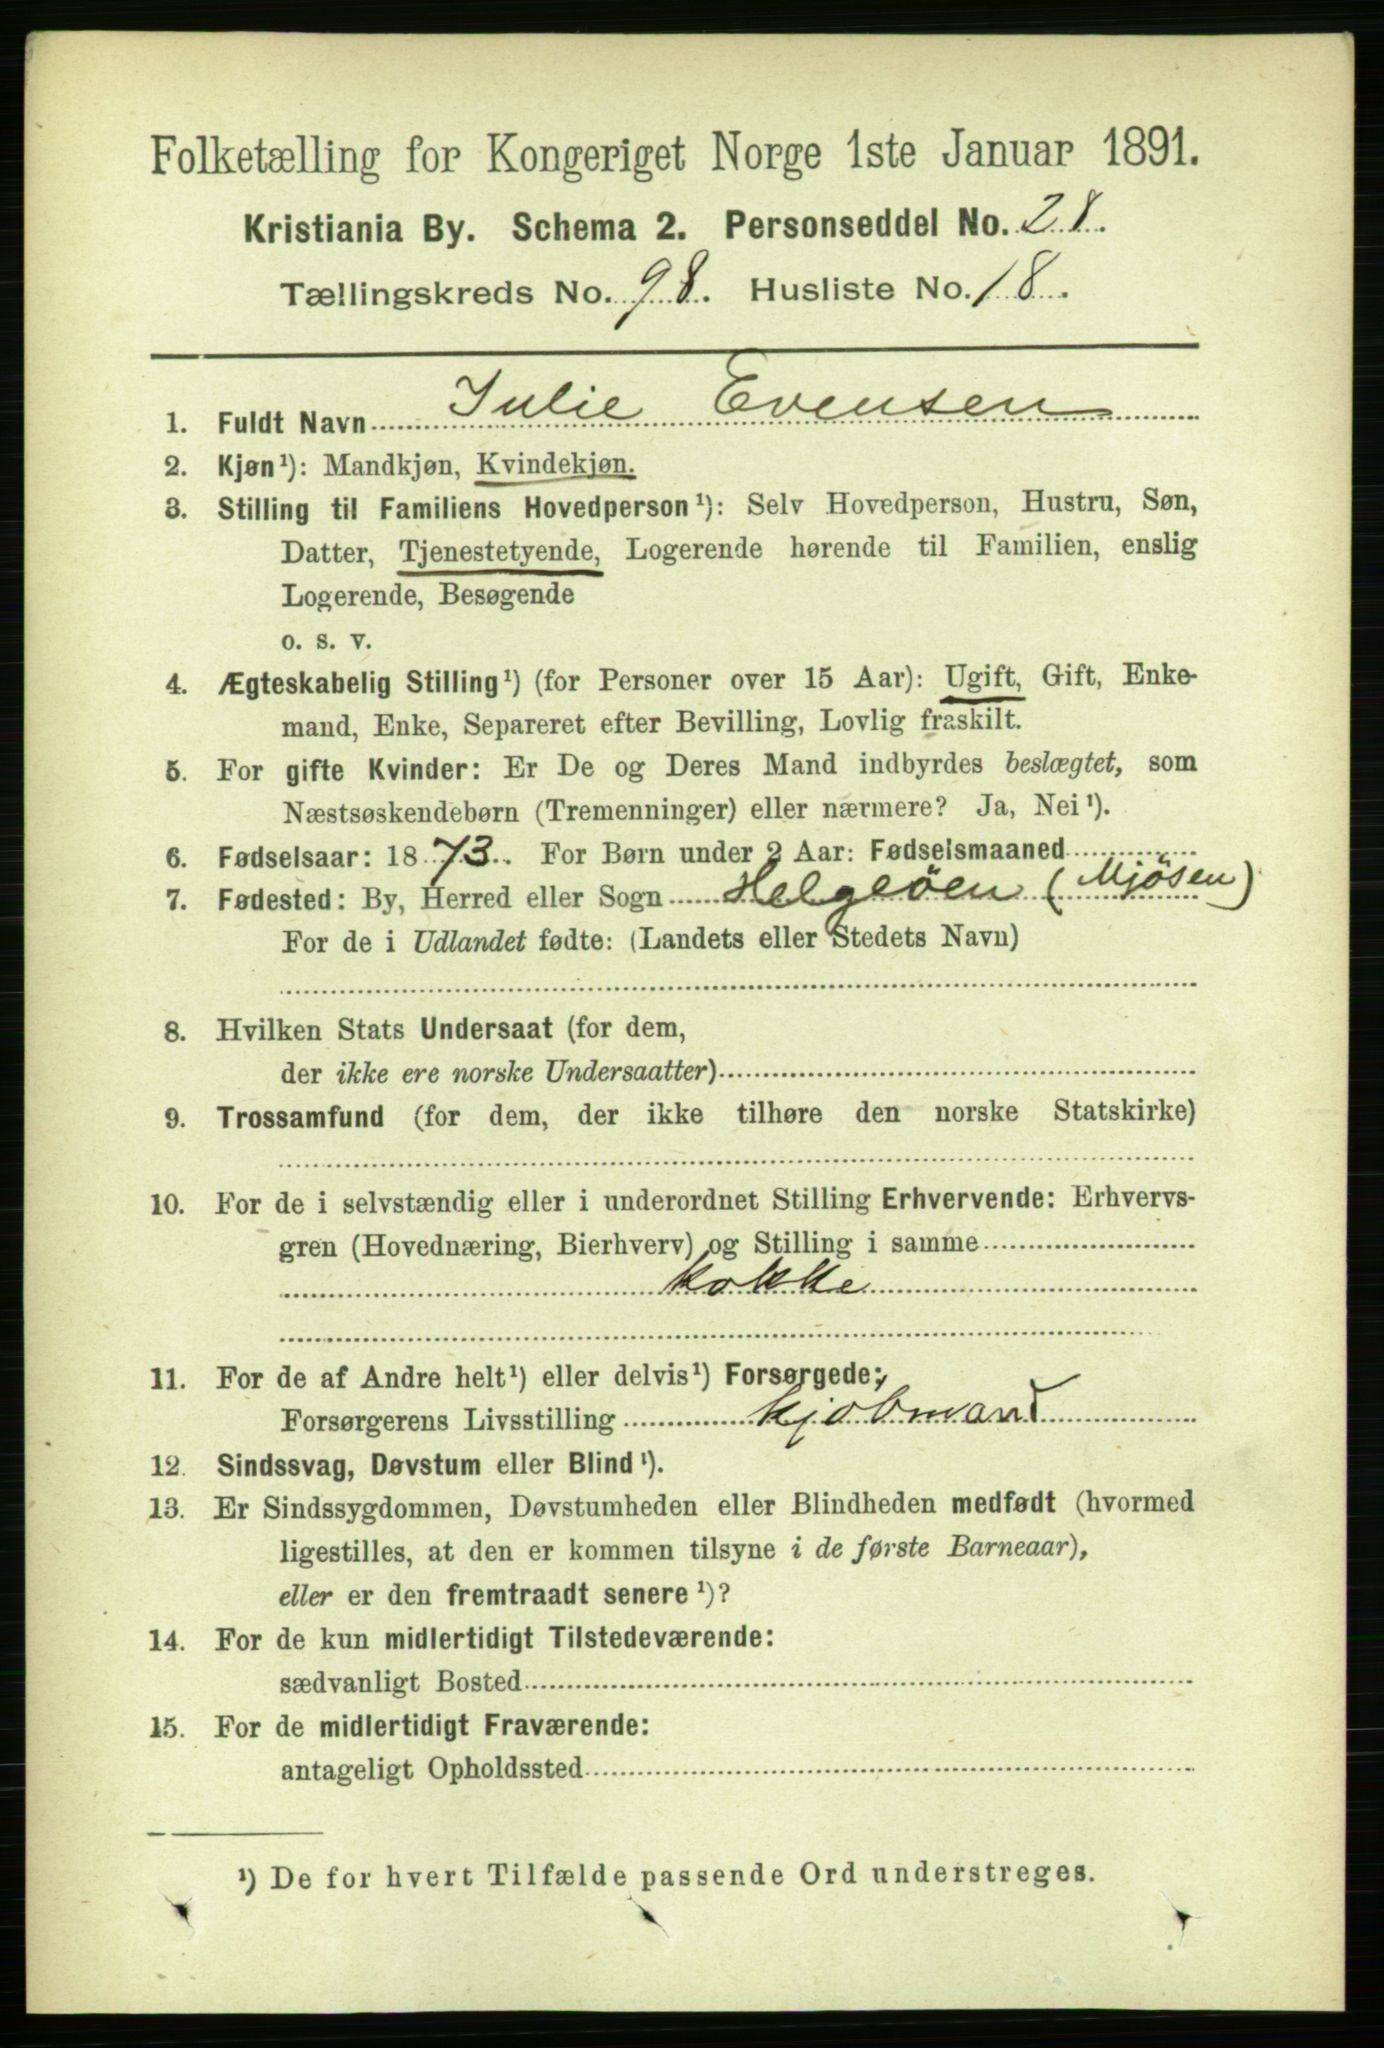 Folketælling for Kongeriget Norge 1ste Januar 1891.
Kristiania By. Schema 2. Personseddel No. 28.
Tællingskreds No. 98. Husliste No. 18.
1. Fuldt Navn Julie Evensen
2. Kjøn¹): Mandkjøn, Kvindekjøn.
3. Stilling til Familiens Hovedperson¹): Selv Hovedperson, Hustru, Søn,
Datter, Tjenestetyende, Logerende hørende til Familien, enslig
Logerende, Besøgende
o. s. v.
4. Ægteskabelig Stilling¹) (for Personer over 15 Aar): Ugift, Gift, Enke-
mand, Enke, Separeret efter Bevilling, Lovlig fraskilt.
5. For gifte Kvinder: Er De og Deres Mand indbyrdes beslægtet, som
Næstsøskendebørn (Tremenninger) eller nærmere? Ja, Nei¹).
6. Fødselsaar: 1873. For Børn under 2 Aar: Fødselsmaaned
7. Fødested: By, Herred eller Sogn Helgeöen (Mjösen)
For de i Udlandet fødte: (Landets eller Stedets Navn)
8. Hvilken Stats Undersaat (for dem,
der ikke ere norske Undersaatter)
9. Trossamfund (for dem, der ikke tilhøre den norske Statskirke)
10. For de i selvstændig eller i underordnet Stilling Erhvervende: Erhvervs-
gren (Hovednæring, Bierhverv) og Stilling i samme
Kokke
11. For de af Andre helt¹) eller delvis¹) Forsørgede:
Forsørgerens Livsstilling Kjobmand
12. Sindssvag, Døvstum eller Blind¹).
13. Er Sindssygdommen, Døvstumheden eller Blindheden medfødt (hvormed
ligestilles, at den er kommen tilsyne i de første Barneaar),
eller er den fremtraadt senere¹)?
14. For de kun midlertidigt Tilstedeværende:
sædvanligt Bosted
15. For de midlertidigt Fraværende:
antageligt Opholdssted
¹) De for hvert Tilfælde passende Ord understreges.